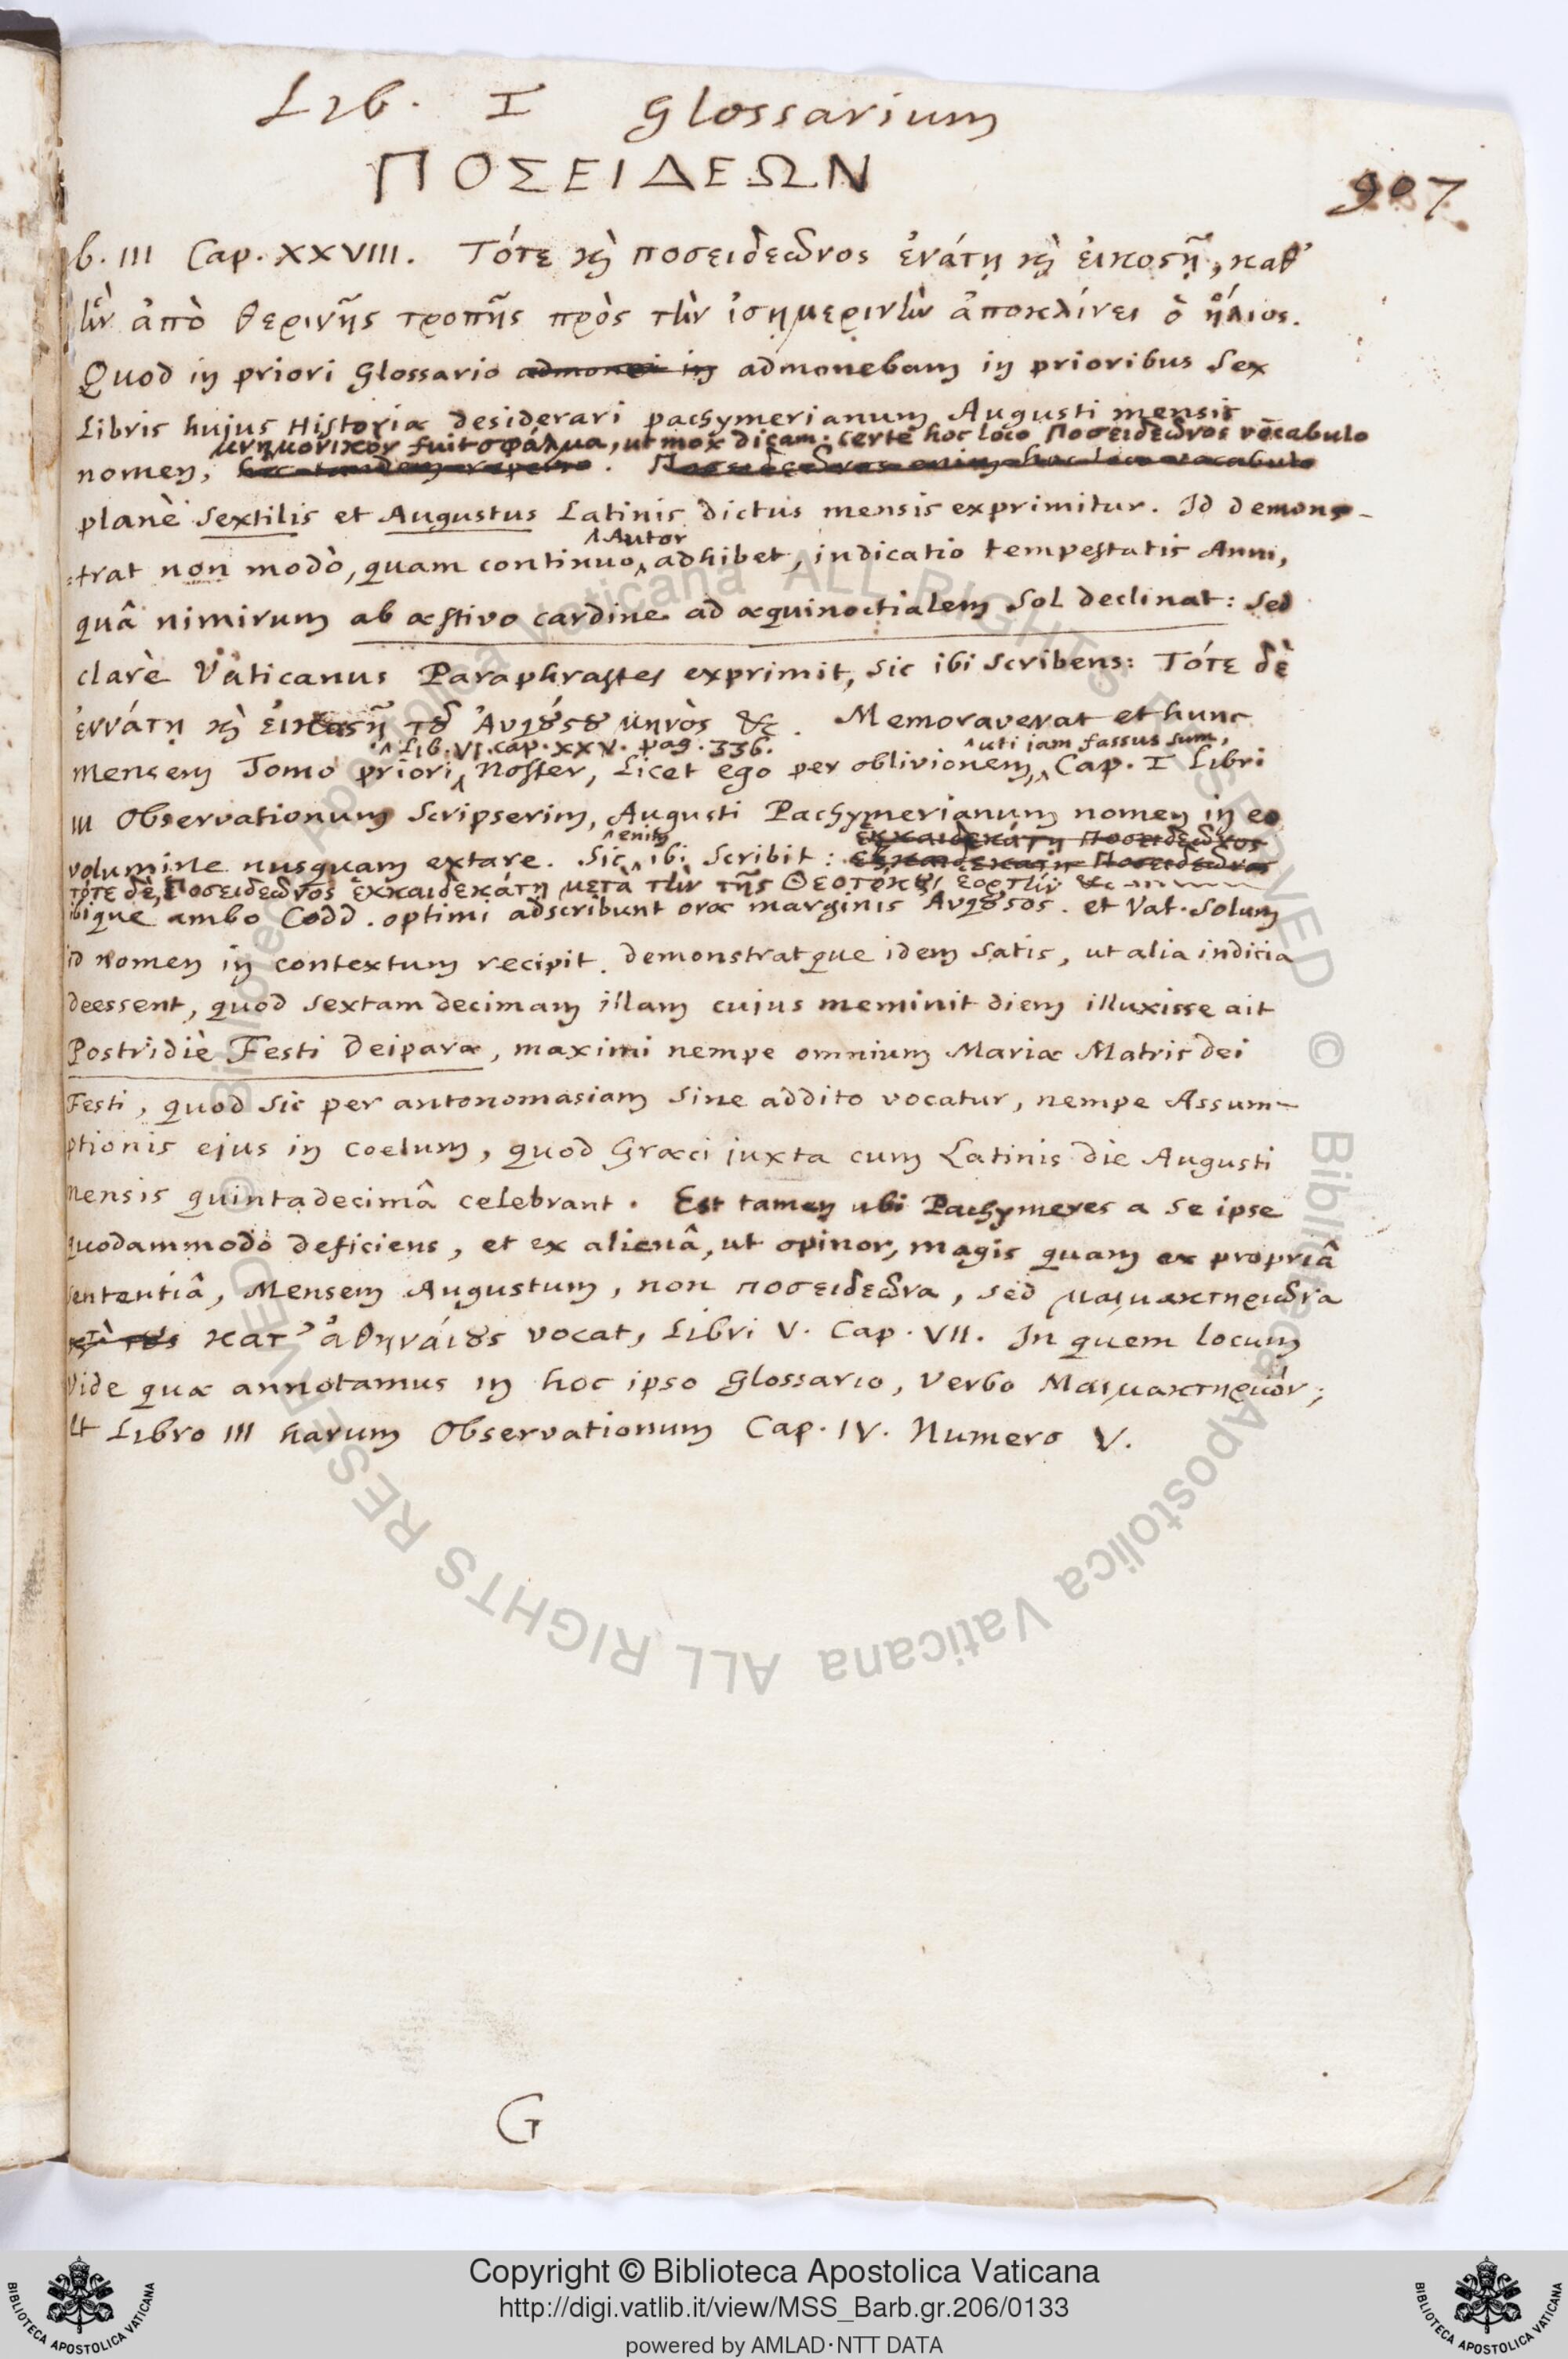 Lib. I Glossarium
ΠΟΣΕΙΔΕΩΝ
907
b. III Cap. XXVIII. Τότε καὶ ποσειδεῶνος ἐνάτῃ καὶ ἐικοστῇ, καθ’
ἣν ἀπὸ θερινῆς τροπῆς πρὸς τὴν ἰσημερινὴν ἀποκλίνει ὁ ἥλιος.
Quod in priori Glossario admonui in admonebam in prioribus Sex
Libris hujus Historiæ desiderari pachymerianum Augusti mensis
μνημονικὸν fuit σφάλμα, ut mox dicam. certè hoc loco Ποσειδεῶνος vocabulo
nomen, . Ποσειδεῶνος enim hoc loco vocabulo
planè Sextilis et Augustus Latinis dictus mensis exprimitur. Id demons-
^Autor
=trat non modò, quam continuo ^ adhibet, indicatio tempestatis Anni,
quâ nimirum ab æstivo cardine ad æquinoctialem Sol declinat: Sed
clarè Vaticanus Paraphrastes exprimit, sic ibi scribens: Τότε δὲ
ἐννάτῃ καὶ ἐικοστῇ τοῦ Ἀυγούστου μηνὸς &c. Memoraverat et hunc
^Lib. VI. cap. XXV. pag. 336. ^uti jam fassus sum,
mensem Tomo priori ^ Noster, Licet ego per oblivionem, ^ Cap. I Libri
III Observationum Scripserim, Augusti Pachymerianum nomen in eo
^enim ἑκκαιδεκάτῃ Ποσειδεῶνος
volumine nusquam extare. Sic ^ ibi Scribit: Ποσειδεῶνος
τότε δὲ, Ποσειδεῶνος ἑκκαιδεκάτῃ μετὰ τὴν τῆς Θεοτόκου ἑορτὴν &c
ibique ambo Codd. optimi adscribunt oræ marginis Ἀυγουστος. et Vat. Solum
id Nomen in contextum recipit. demonstratque idem satis, ut alia indicia
deessent, quod Sextam decimam illam cujus meminit diem illuxisse ait
Postridiè Festi Deiparæ, maximi nempe omnium Mariæ Matris dei
Festi, quod Sic per antonomasiam Sine addito vocatur, nempe Assum-
ptionis ejus in coelum, quod Græci juxta cum Latinis die Augusti
mensis quintadecimâ celebrant. Est tamen ubi Pachymeres a se ipse
quodammodo deficiens, et ex alienâ, ut opinor, magis quam ex propriâ
sententiâ, Mensem Augustum, non ποσειδεῶνα, sed μαιμακτηριῶνα
καὶ τοὺς κατ’ ἀθηνάιους vocat, Libri V. Cap. VII. In quem locum
Vide quæ annotamus in hoc ipso Glossario, Verbo Μαιμακτηριών;
et Libro III harum Observationum Cap. IV. Numero V.
G
Copyright © Biblioteca Apostolica Vaticana
http://digi.vatlib.it/view/MSS_Barb.gr.206/0133
powered by AMLAD·NTT DATA
BIBLIOTECA APOSTOLICA VATICANA
BIBLIOTECA APOSTOLICA VATICANA
© Biblioteca Apostolica Vaticana ALL RIGHTS RESERVED
© Biblioteca Apostolica Vaticana ALL RIGHTS RESERVED